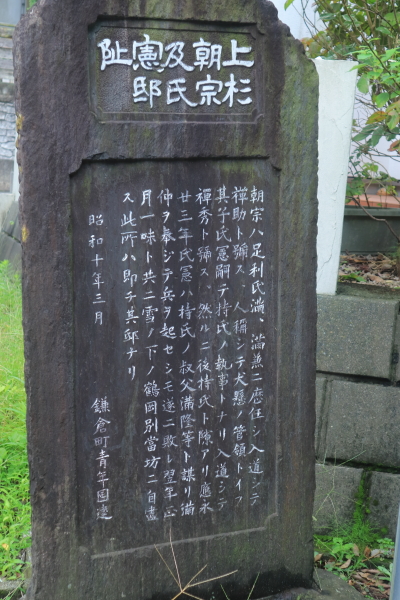 上杉
朝宗
及氏
憲邸
阯
朝宗ハ足利氏満、満兼ニ歴任シ入道シテ
禅助ト称ス、人称シテ犬懸ノ管領トイフ
其子氏憲嗣テ持氏ノ執事トナリ入道シテ
禅秀ト称ス、然ルニ後持氏ト隙アリ應永
廿三年氏憲ハ持氏ノ叔父満隆等ト謀リ満
仲ヲ奉ジテ兵ヲ起セシモ遂ニ敗レ翌年正
月一味ト共ニ雪ノ下ノ鶴岡別當坊ニ自盡
ス此ノ所ハ即チ其邸ナリ
昭和十年三月
鎌倉町青年團建